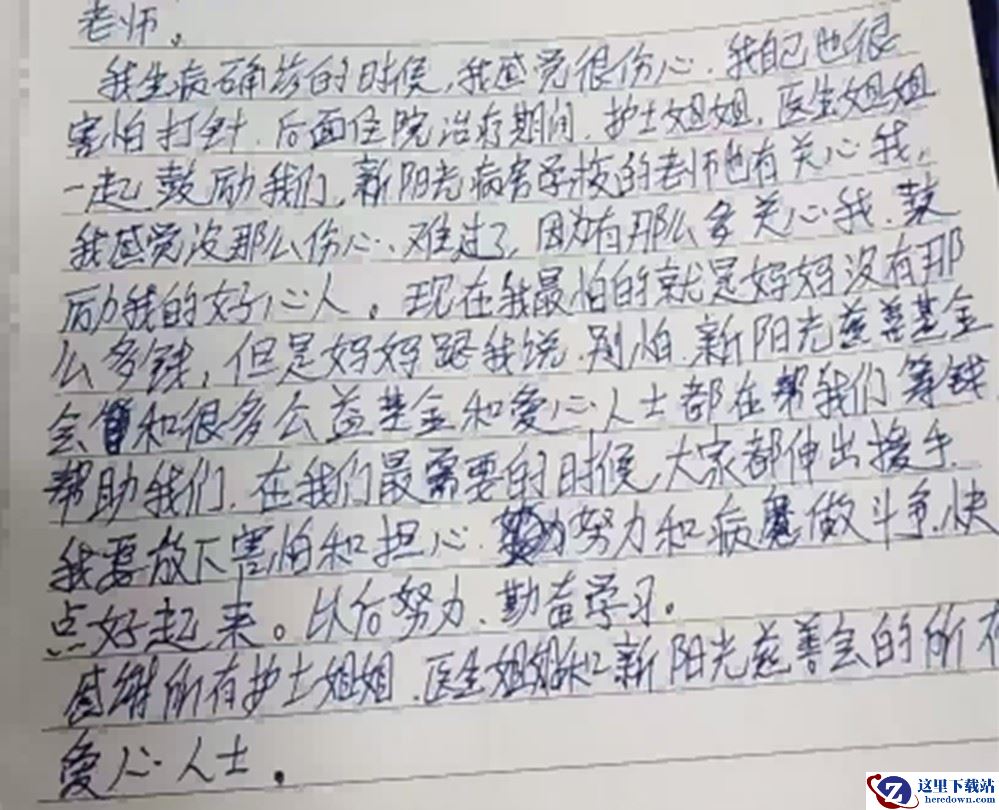 老师。
我生病确诊的时候，我感觉很伤心，我自己也很
害怕打针，后面住院治疗期间，护士姐姐、医生姐姐
一起鼓励我们，新阳光病房学校的老师也有关心我，
我感觉没那么伤心、难过了，因为有那么多关心我、鼓
励我的好心人。现在我最怕的就是妈妈没有那
么多钱，但是妈妈跟我说，别怕，新阳光慈善基金
会和很多公益基金和爱心人士都在帮我们筹钱
帮助我们，在我们最需要的时候，大家都伸出援手，
我要放下害怕和担心，努力和病魔做斗争，快
点好起来。以后努力、勤奋学习。
感谢所有护士姐姐、医生姐姐和新阳光慈善会的所有
爱心人士。
这里下载站
heredown.com